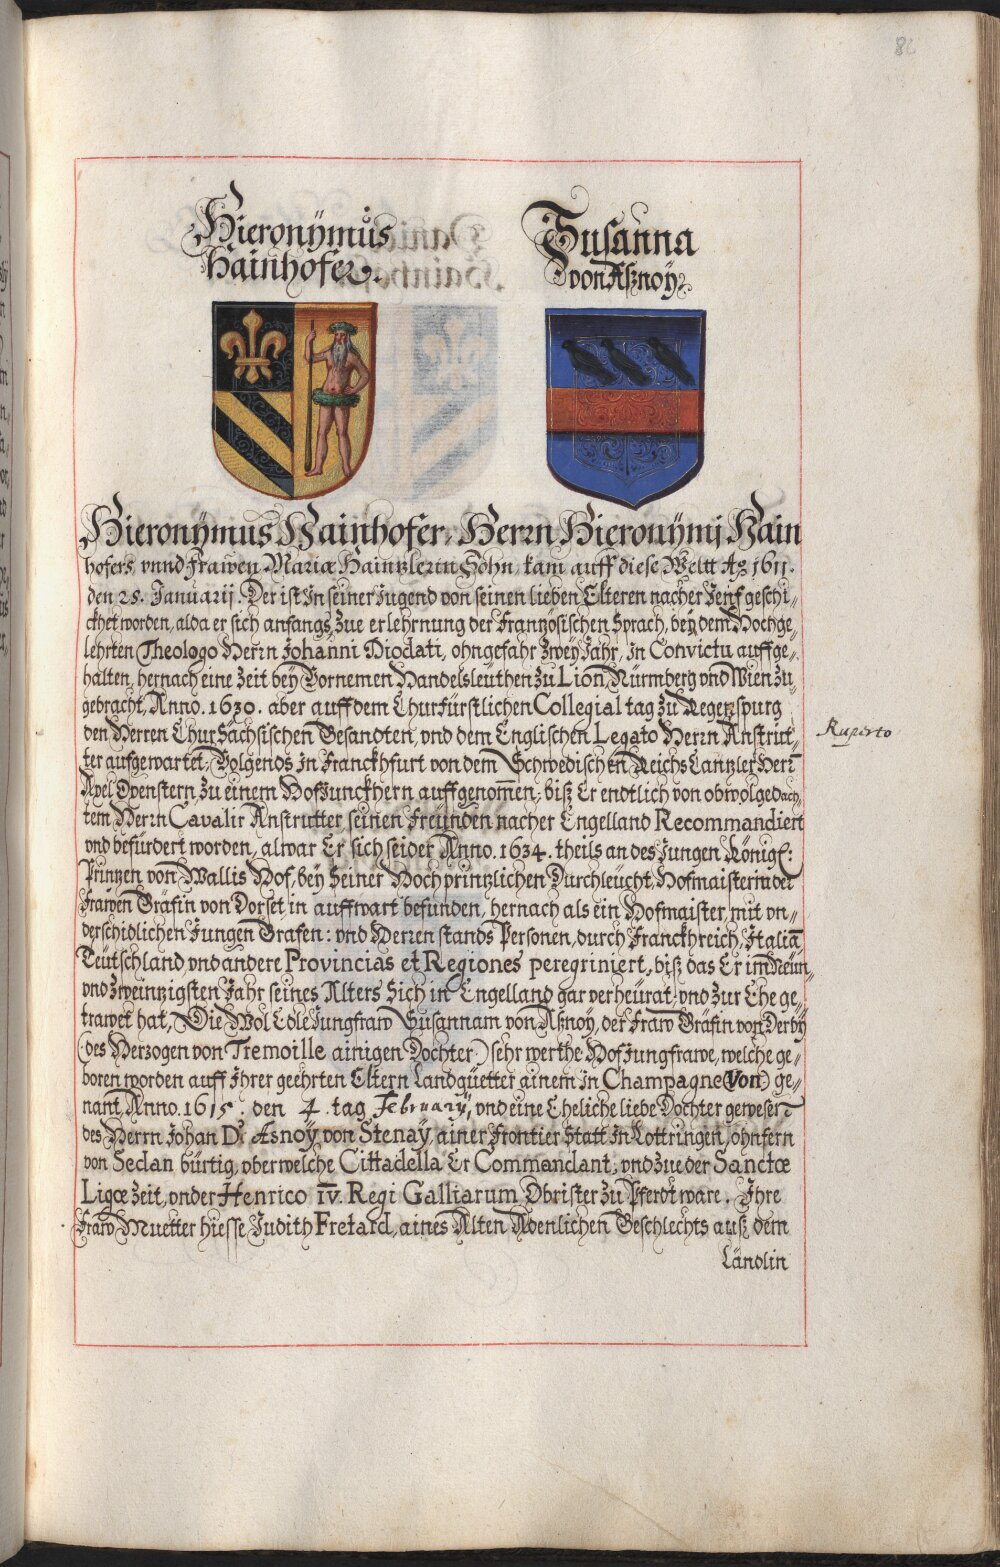 82
Hieronÿmus
Hainhofer.
Susanna
von Aßnoÿ
Hieronÿmus Hainhofer, Herrn Hieronÿmj Hain
hofers vnnd Frawen Mariæ Haintzlerin Sohn, kam auff diese Weltt Aº 1611.
den 25. Januarij. Der ist In seiner Jugend von seinen lieben Elteren nacher Jenf geschi-
ckhet worden, alda er sich anfangs, zue erlehrnung der Französischen Sprach, beÿ dem Hochge-
lehrten Theologo Herrn Johanni Diodati, ohngefahr zweÿ Jahr, in Convictu auffge-
halten, hernach eine Zeit beÿ Vornemen Handelsleüthen zu Lion, Nürmberg vnd Wien zu-
gebracht, Anno. 1630. aber auff dem Churfürstlichen Collegial tag zu Regenspurg
den Herren Chur Sächsischen Gesandten, vnd dem Englischen Legato Herrn Anstrut-
Ruperto
ter aufgewartet, Volgends in Franckhfurt von dem Schwedischen Reichs Cantzler Herrn
Axel Oxenstern, zu einem Hof Junckhern auffgenom̄en, biß Er endtlich von obwolgedach-
tem Herrn Cavalir Anstrutter seinen Freünden nacher Engelland Recommandiert
vnd befürdert worden, alwar Er sich seider Anno. 1634. theils an des Jungen Königl:
Printzen von Wallis Hof, beÿ Seiner Hochprintzlichen Durchleücht Hofmaisterin der
Frawen Gräfin von Dorset in auffwart befunden, hernach als ein Hofmaister, mit vn-
derschidlichen Jungen Grafen: vnd Herren stands Personen, durch Franckhreich, Italiā,
Teütschland, vnd andere Provincias et Regiones peregriniert, biß das Er im Neün-
vnd zweintzigsten Jahr seines Alters Sich in Engelland gar verheürat, vnd zur Ehe ge-
trawet hat, Die Wol Edle Jungfraw Susannam von Aßnoÿ, der Fraw Gräfin von Derbÿ
(des Herzogen von Tremoille ainigen Dochter) sehr werthe Hof Jungfrawe, welche ge-
boren worden auff Ihrer geehrten Eltern Landgüetter ainem in Champagne (Von) ge-
nant, Anno. 1615. den 4. tag Februarÿ, vnd eine Eheliche liebe Dochter gewesen
des Herrn Johan D' Asnoÿ, von Stenaÿ, ainer Frontier Statt in Lottringen, ohnfern
von Sedan bürtig, vber welche Cittadella Er Commandant, vnd zue der Sanctæ
Ligæ Zeit, vnder Henrico IV. Regi Galliarum, Obrister zu Pferdt ware. Ihre
Fraw Muetter hiesse Judith Fretard, aines Alten Adenlichen Geschlechts auß dem
Ländlin